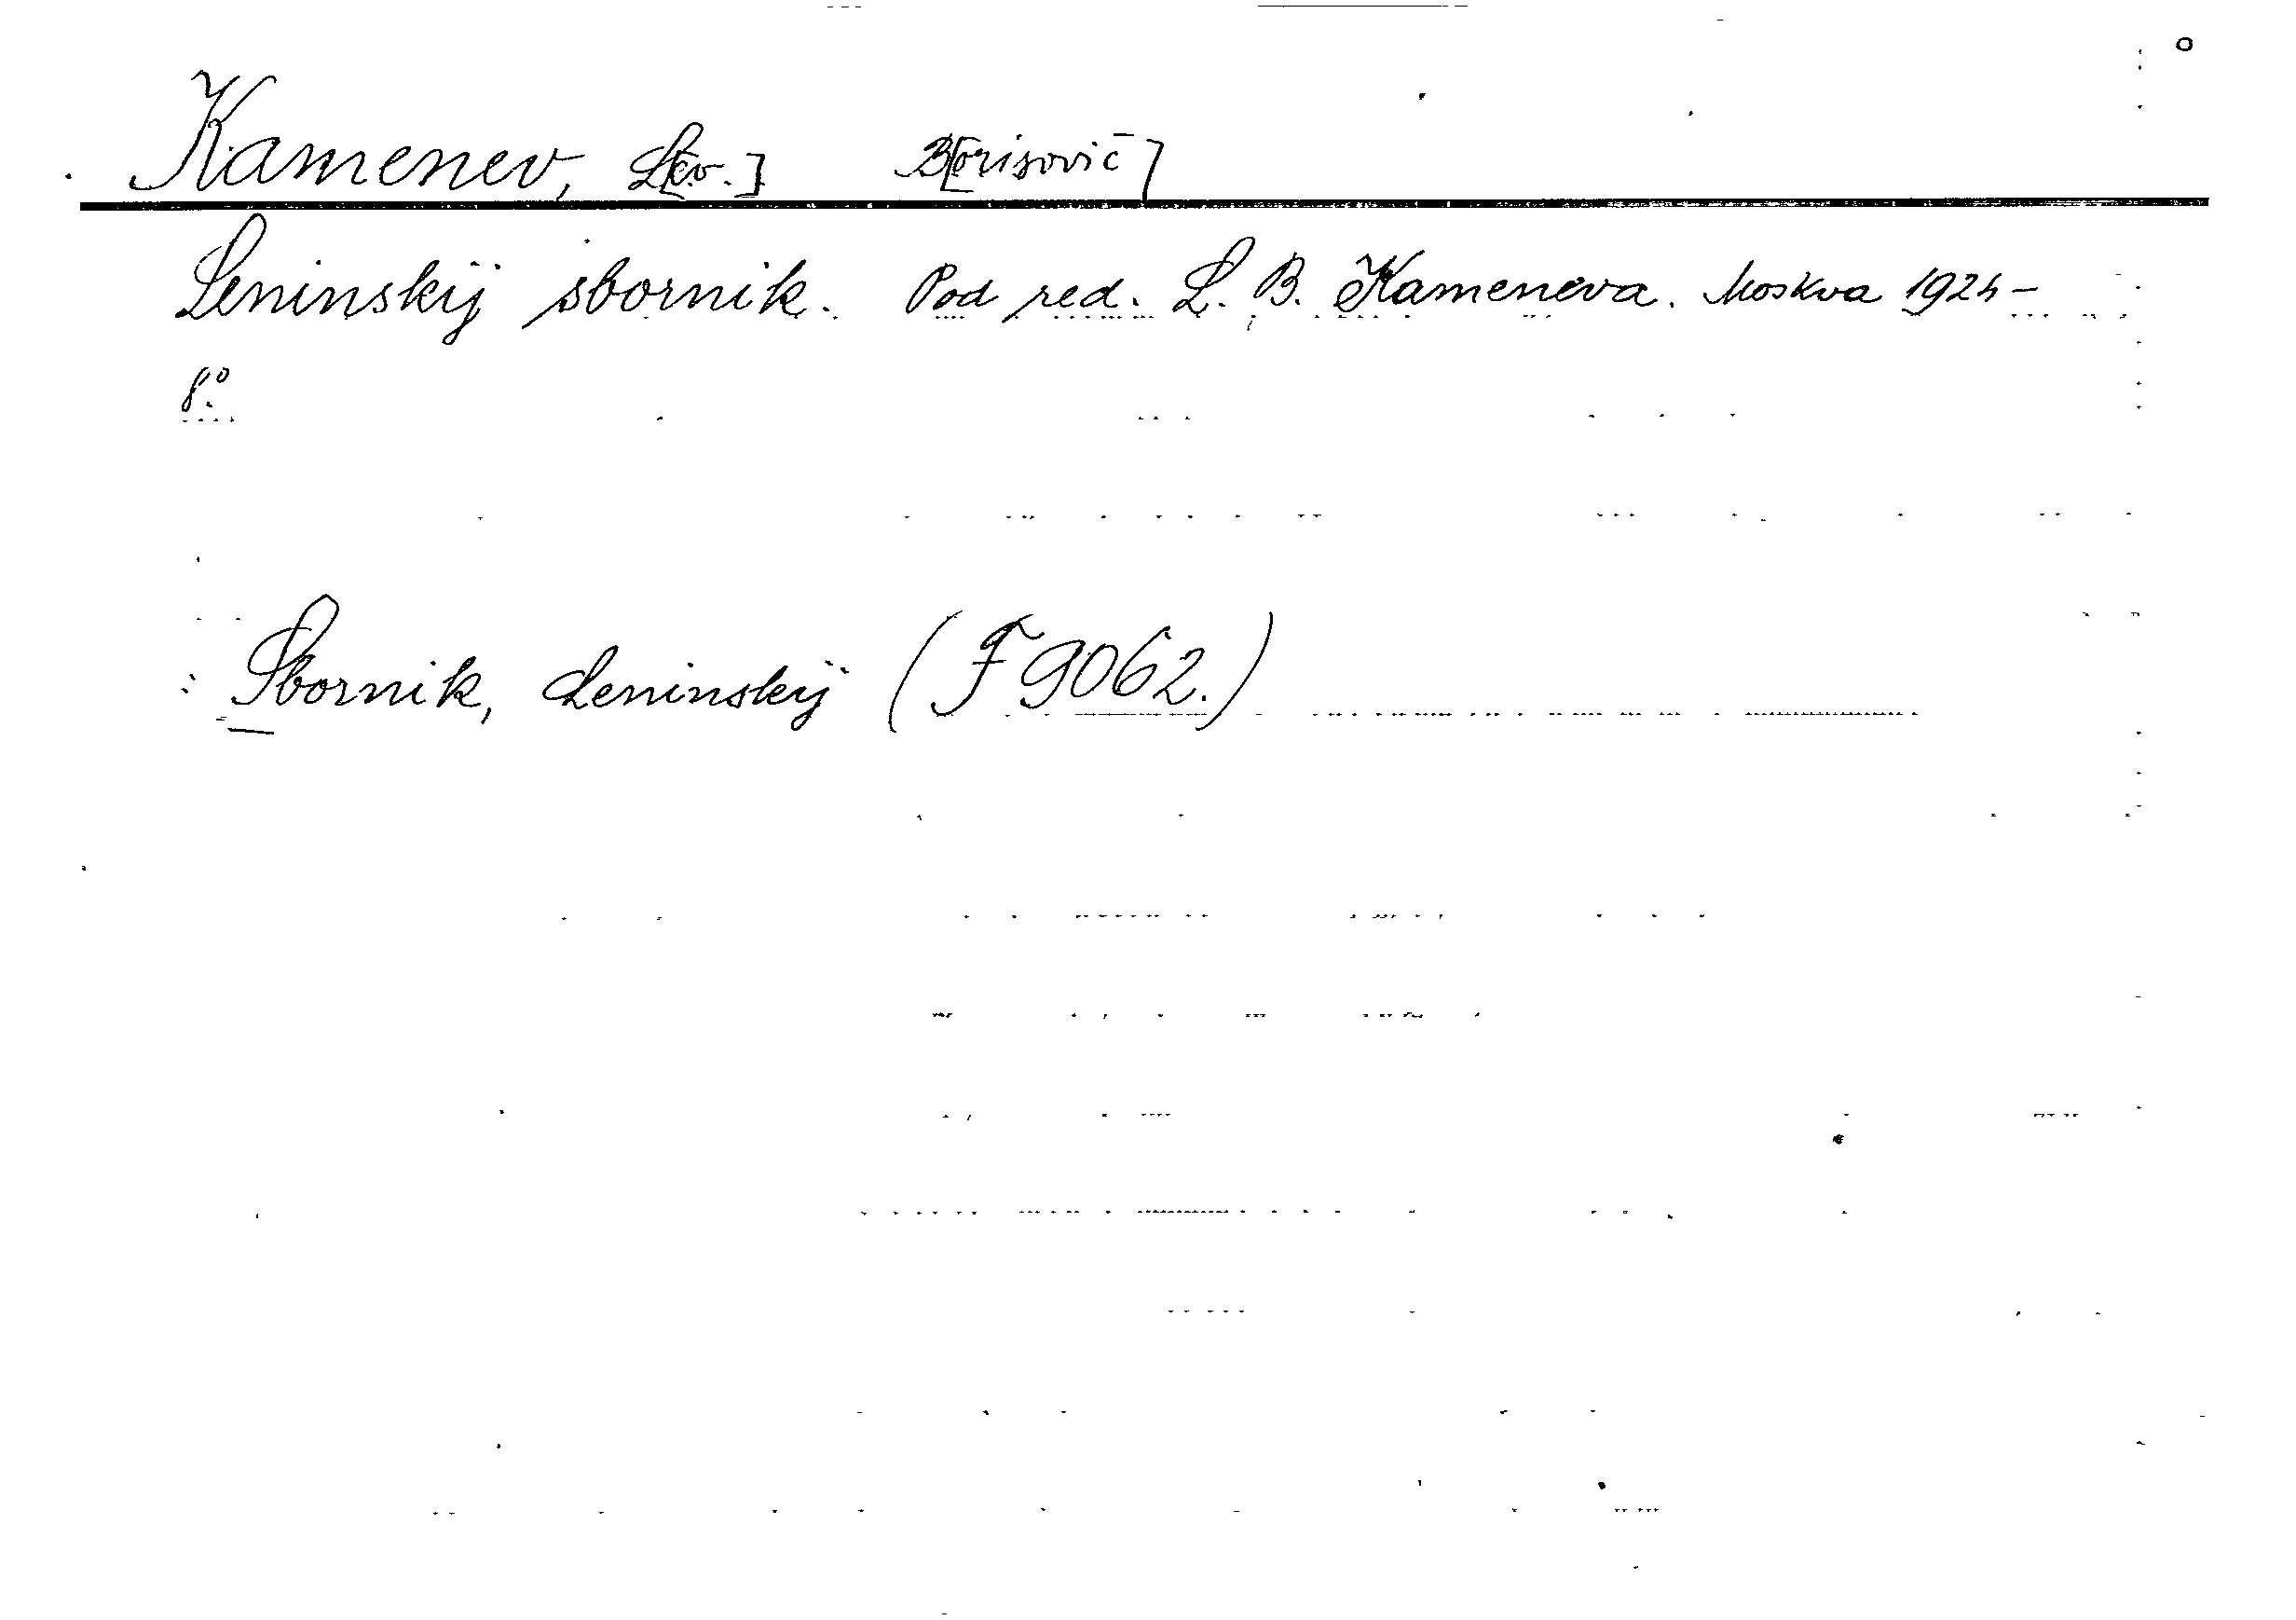 Kamenev, L[ev.] B[orisovič]
Leninskij sbornik. Pod red. L. B. Kameneva. Moskva 1924-
8°.
: Sbornik, Leninskij (F 9062.)